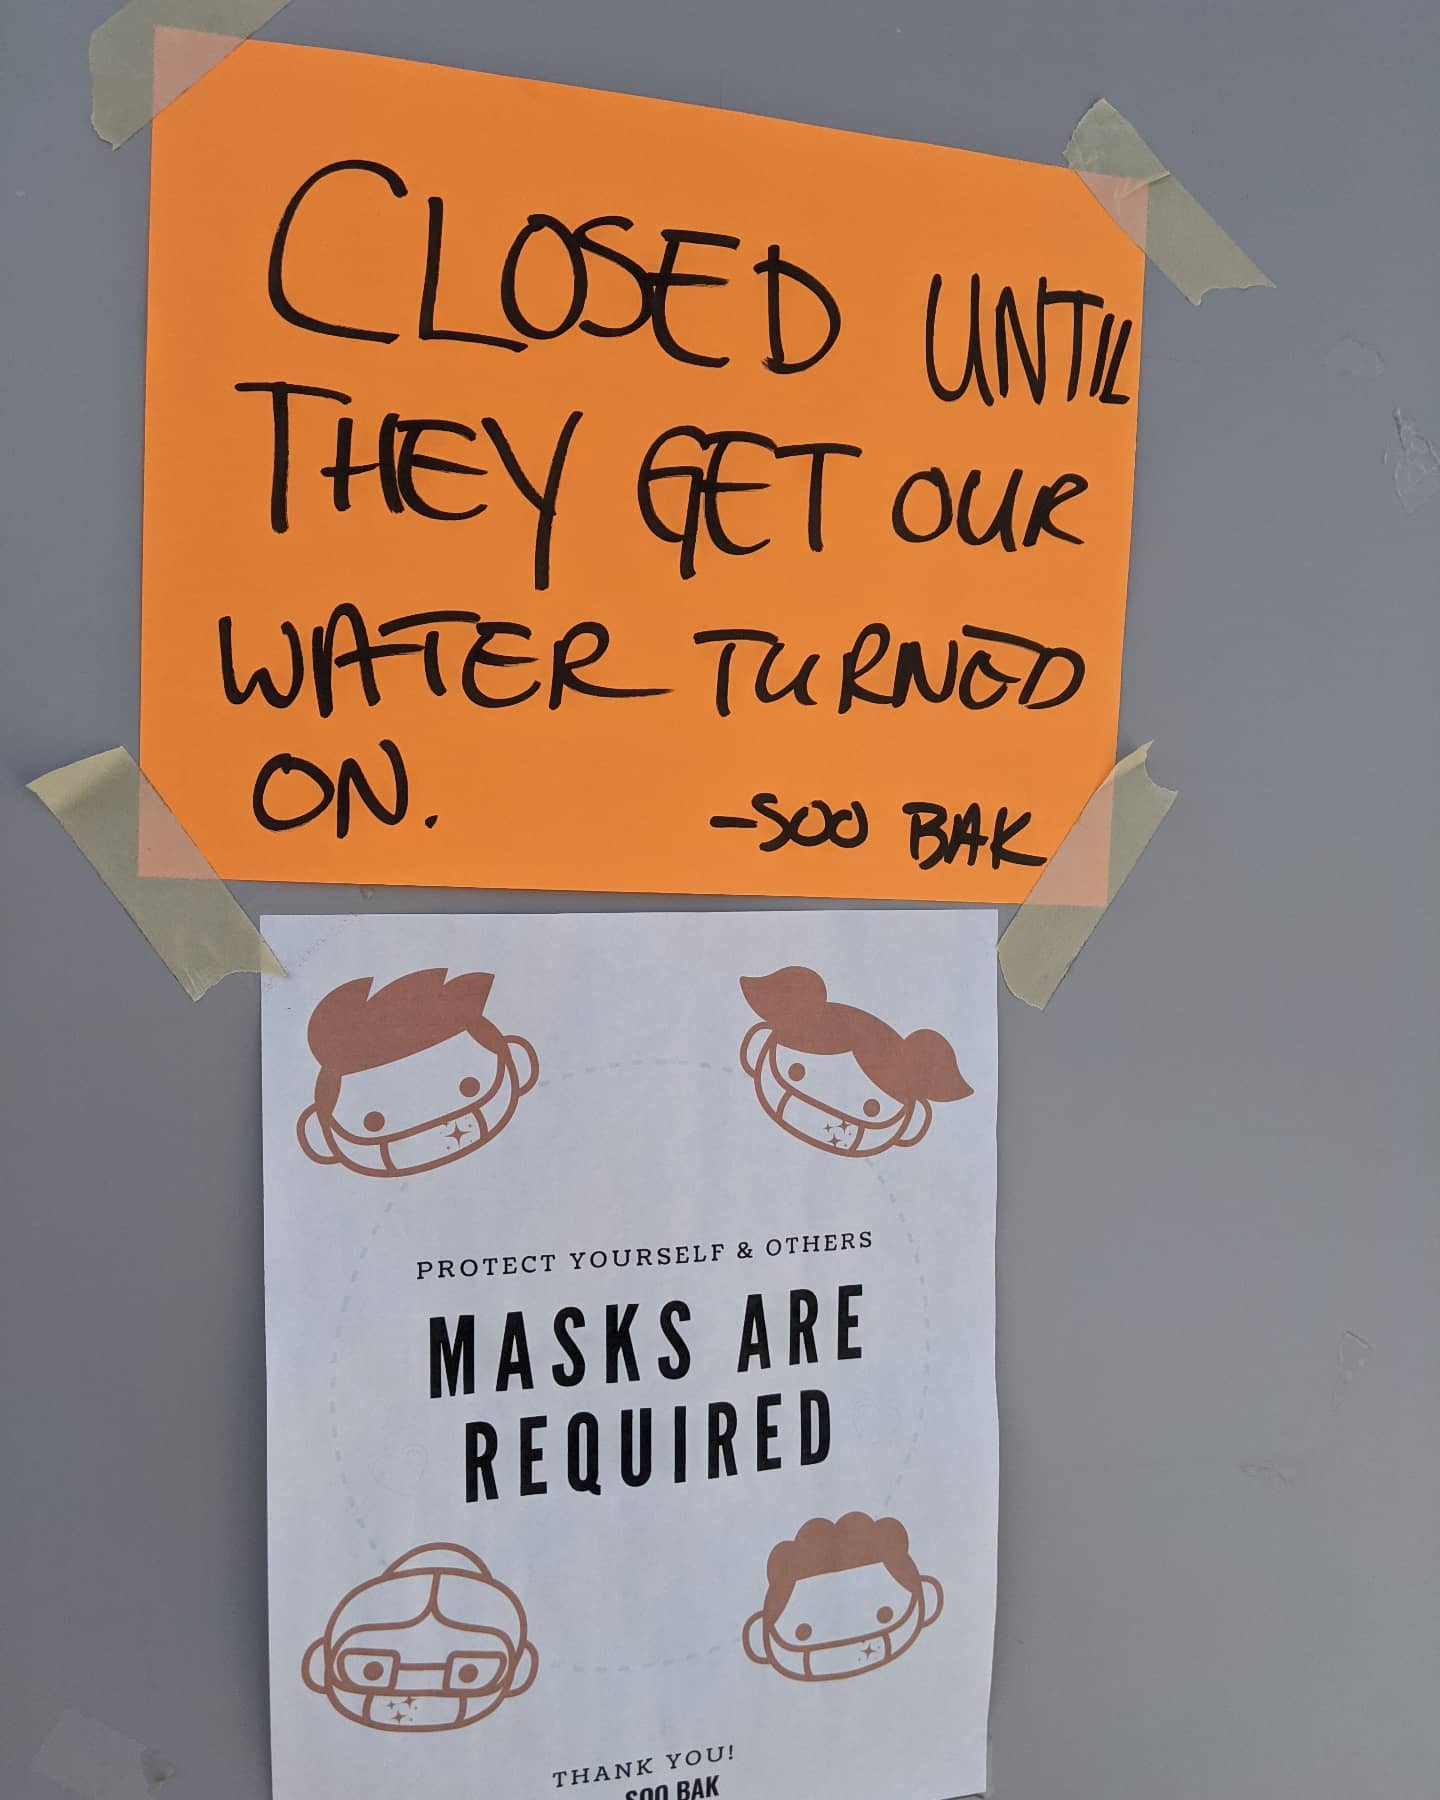 CLOSED UNTIL
THEY GET OUR
WATER TURNED
ON.
-SOO BAK
PROTECT YOURSELF & OTHERS
MASKS ARE
REQUIRED
THANK YOU!
SOO BAK